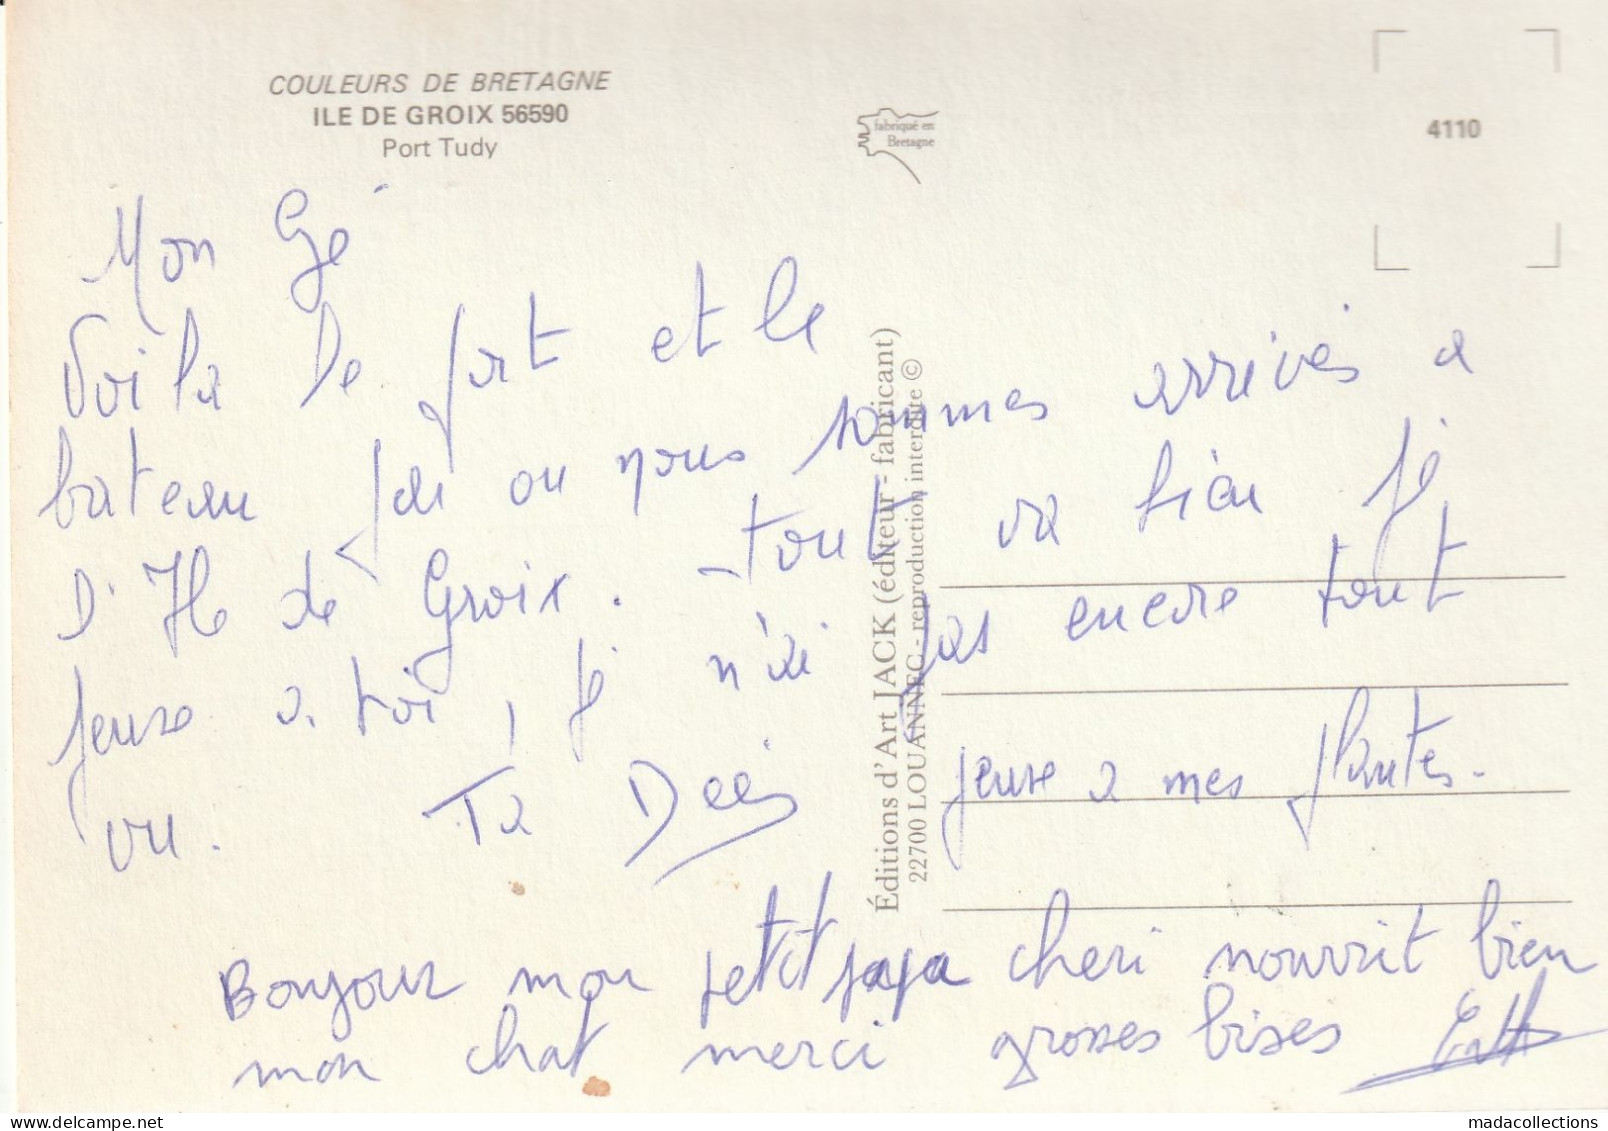 COULEURS DE BRETAGNE
ILE DE GROIX 56590
Port Tudy
fabriqué en
Bretagne
4110
Mon Gé
Voila le port et le
bateau par ou nous sommes arrivés a
D'Ile de Groix. tout va bien je
pense a toi, j n'ai pas encore tout
vu. Ta pense a mes plantes.
Bonjour mon petit papa cheri nourrit bien
mon chat merci grosses bises
Éditions d'Art JACK (éditeur - fabricant)
22700 LOUANNEC - reproduction interdite ©
madacollections